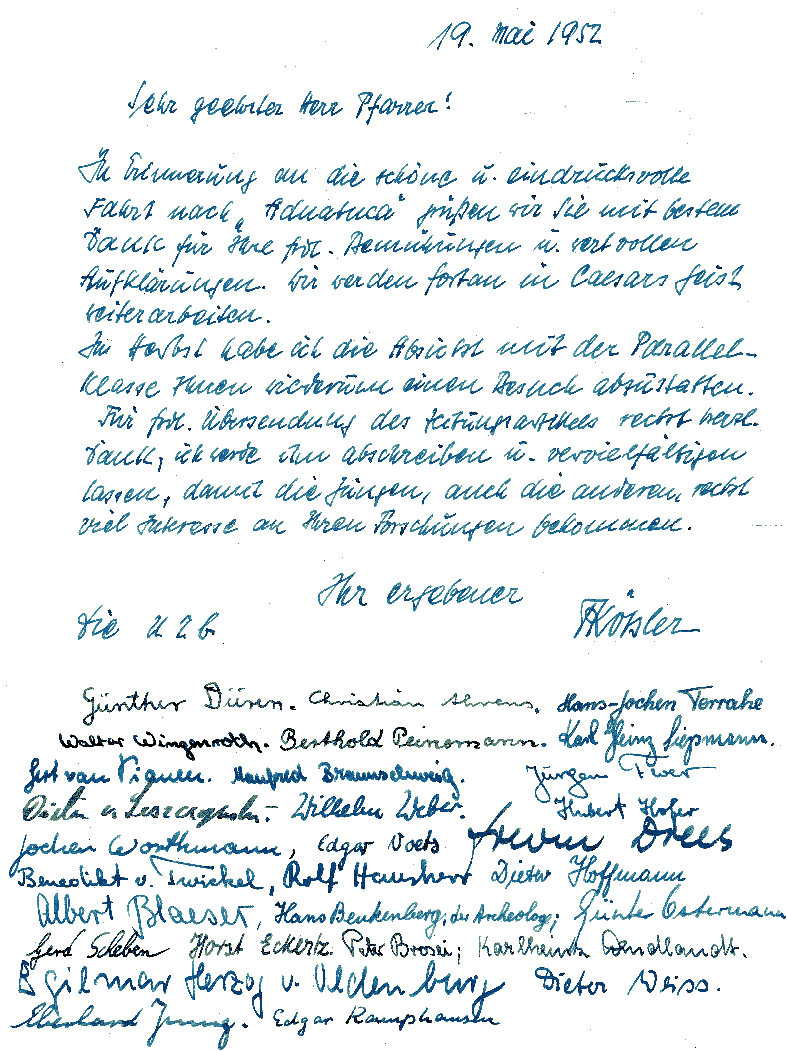 19. Mai 1952
Sehr geehrter Herr Pfarrer!
In Erinnerung an die schöne u. eindrucksvolle
Fahrt nach „Aduatuca“ grüßen wir Sie mit bestem
Dank für Ihre frdl. Bemühungen u. wertvollen
Aufklärungen. Wir werden fortan in Caesars Geist
weiterarbeiten.
Im Herbst habe ich die Absicht mit der Parallel-
klasse Ihnen wiederum einen Besuch abzustatten.
Für frdl. Übersendung des Zeitungsartikels recht herzl.
Dank, ich werde ihn abschreiben u. vervielfältigen
lassen, damit die Jungen, auch die anderen, recht
viel Interesse an Ihren Forschungen bekommen.
Ihr ergebener
Die U2b. Kößler
Günther Düren. Christian Ahrens. Hans-Jochen Terrahe
Walter Wingenroth. Berthold Peinemann. Karl Heinz Siepmann.
Gert van Manfred Braunschweig. Jürgen
Wilhelm Weber. Hubert Hofer
Jochen Worthmann, Edgar Voets Drees
Benedikt v. Twickel, Rolf Hausherr Dieter Hoffmann
Albert Blaeser, Hans Benkenberg, der Archeologe; Günter Ostermann
Gerd Scheben Horst Eckertz. Peter Brosei; Karlheinz Wendlandt.
Egilmar Herzog v. Oldenburg Dieter Weiss.
Eberhard Jung. Edgar Kamphausen